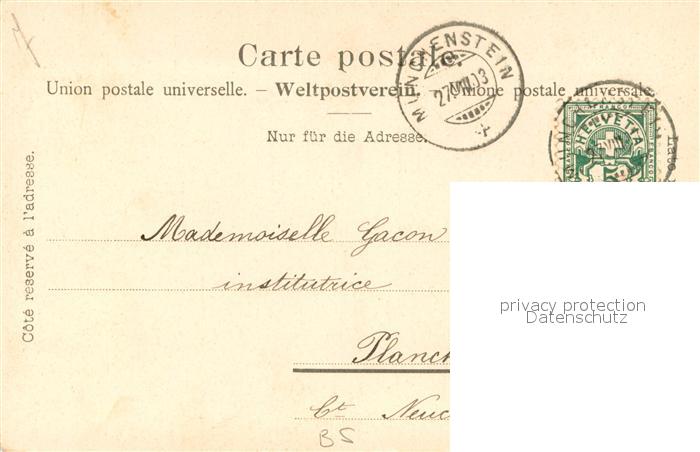 Carte postale.
Union postale universelle. – Weltpostverein. – Unione postale universale.
Nur für die Adresse.
MÜNCHENSTEIN
HELVETIA
FRANCO
Côté reservé à l'adresse.
Mademoiselle Gacon
institutrice
Planch
Ct. Neuc
BS
privacy protection
Datenschutz